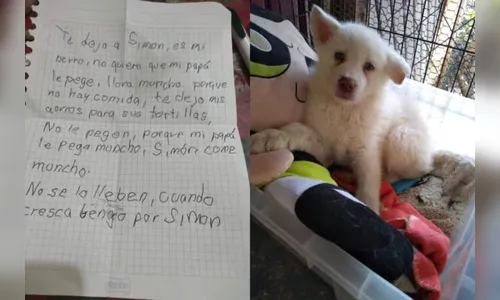 Te dejo a Simon, es mi
perro, no quero que mi papá
le pege, llora muncho porque
no hay comida, te dejo mis
aorros para sus tortillas,
No le pegen, porque mi papá
le pega muncho, Simón come
muncho.
No se lo lleben, cuando
cresca bengo por Simon